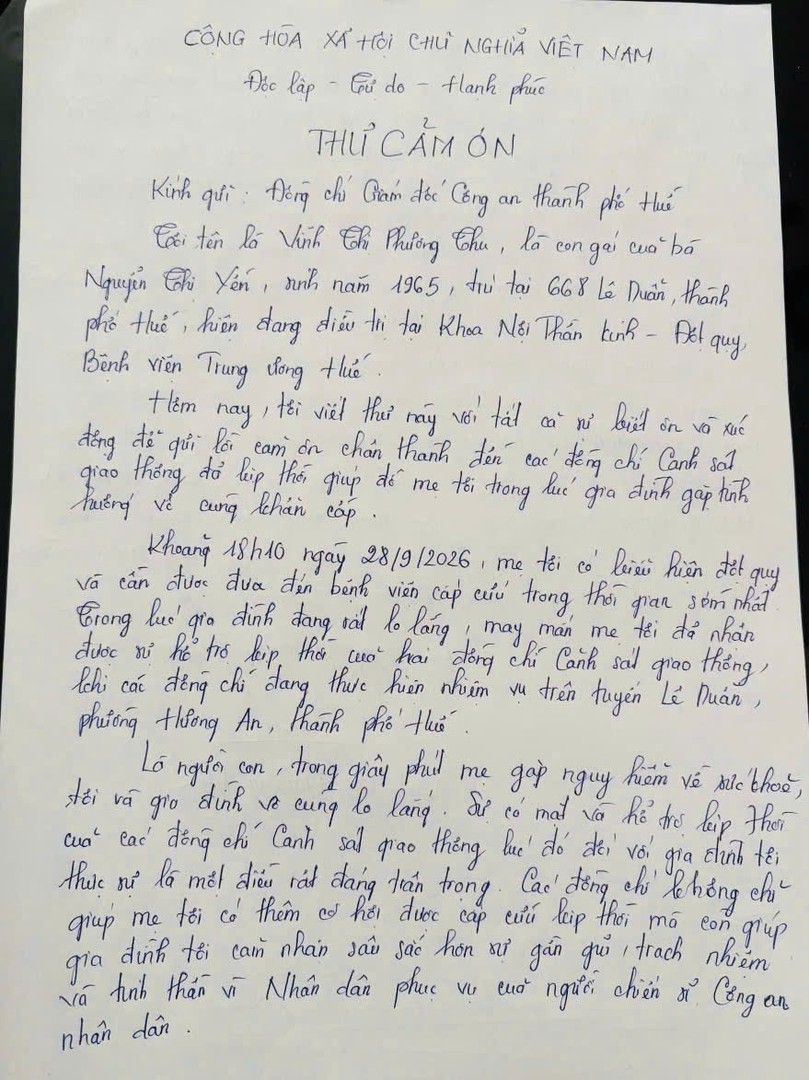 CỘNG HÒA XÃ HỘI CHỦ NGHĨA VIỆT NAM
Độc lập - Tự do - Hạnh phúc
THƯ CẢM ƠN
Kính gửi : Đồng chí Giám đốc Công an thành phố Huế
Tôi tên là Vĩnh Thị Phương Thu, là con gái của bà
Nguyễn Thị Yến, sinh năm 1965, trú tại 668 Lê Duẩn, thành
phố Huế, hiện đang điều trị tại Khoa Nội Thần kinh - Đột quỵ,
Bệnh viện Trung ương Huế.
Hôm nay, tôi viết thư này với tất cả sự biết ơn và xúc
động để gửi lời cảm ơn chân thành đến các đồng chí Cảnh sát
giao thông đã kịp thời giúp đỡ mẹ tôi trong lúc gia đình gặp tình
huống vô cùng khẩn cấp.
Khoảng 18h10 ngày 28/9/2026, mẹ tôi có biểu hiện đột quỵ
và cần được đưa đến bệnh viện cấp cứu trong thời gian sớm nhất.
Trong lúc gia đình đang rất lo lắng, may mắn mẹ tôi đã nhận
được sự hỗ trợ kịp thời của hai đồng chí Cảnh sát giao thông,
khi các đồng chí đang thực hiện nhiệm vụ trên tuyến Lê Duẩn,
phường Hương An, thành phố Huế.
Là người con, trong giây phút mẹ gặp nguy hiểm về sức khoẻ,
tôi và gia đình vô cùng lo lắng. Sự có mặt và hỗ trợ kịp thời
của các đồng chí Cảnh sát giao thông lúc đó đối với gia đình tôi
thực sự là một điều rất đáng trân trọng. Các đồng chí không chỉ
giúp mẹ tôi có thêm cơ hội được cấp cứu kịp thời mà còn giúp
gia đình tôi cảm nhận sâu sắc hơn sự gần gũi, trách nhiệm
và tinh thần vì Nhân dân phục vụ của người chiến sĩ Công an
nhân dân.